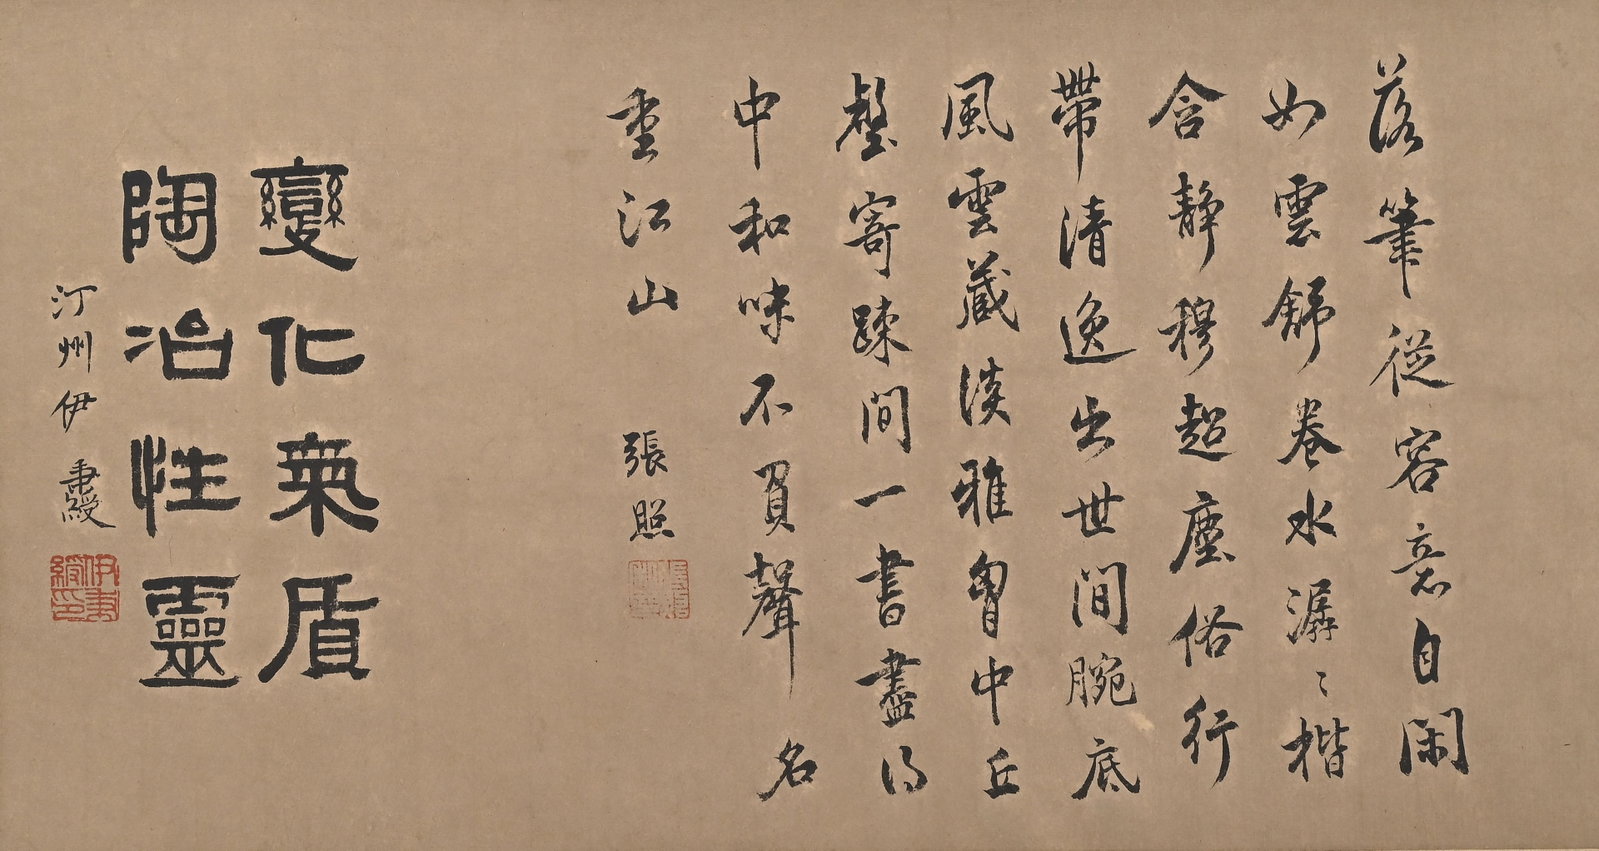 落筆從容意自閑
如雲舒卷水潺〻楷
含靜穆超塵俗行
帶清逸出世間腕底
風雲藏淡雅胷中丘
壑寄疎間一書盡得
中和味不負聲名
重江山
張照
變化氣盾
陶冶性靈
汀州伊秉綬
伊秉綬印